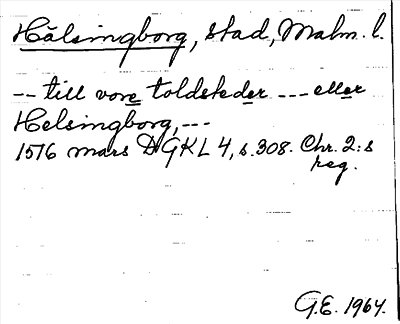 Hälsingborg, stad, Malm. l.
-- till vore toldsteder --- eller
Helsingborg, ---
1576 mars DGKL 4, s. 308. Chr. 2:s
reg.
G.E. 1964.